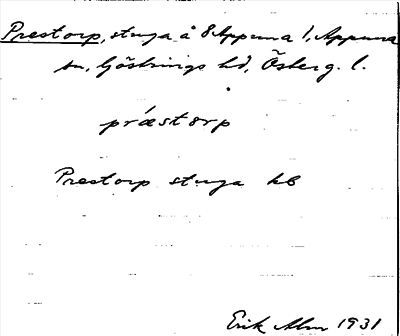 Prestorp, stuga å 8 Appuna 1, Appuna
sn, Göstrings hd, Österg. l.
præstorp
Prestorp stuga kb
Erik Alm 1931